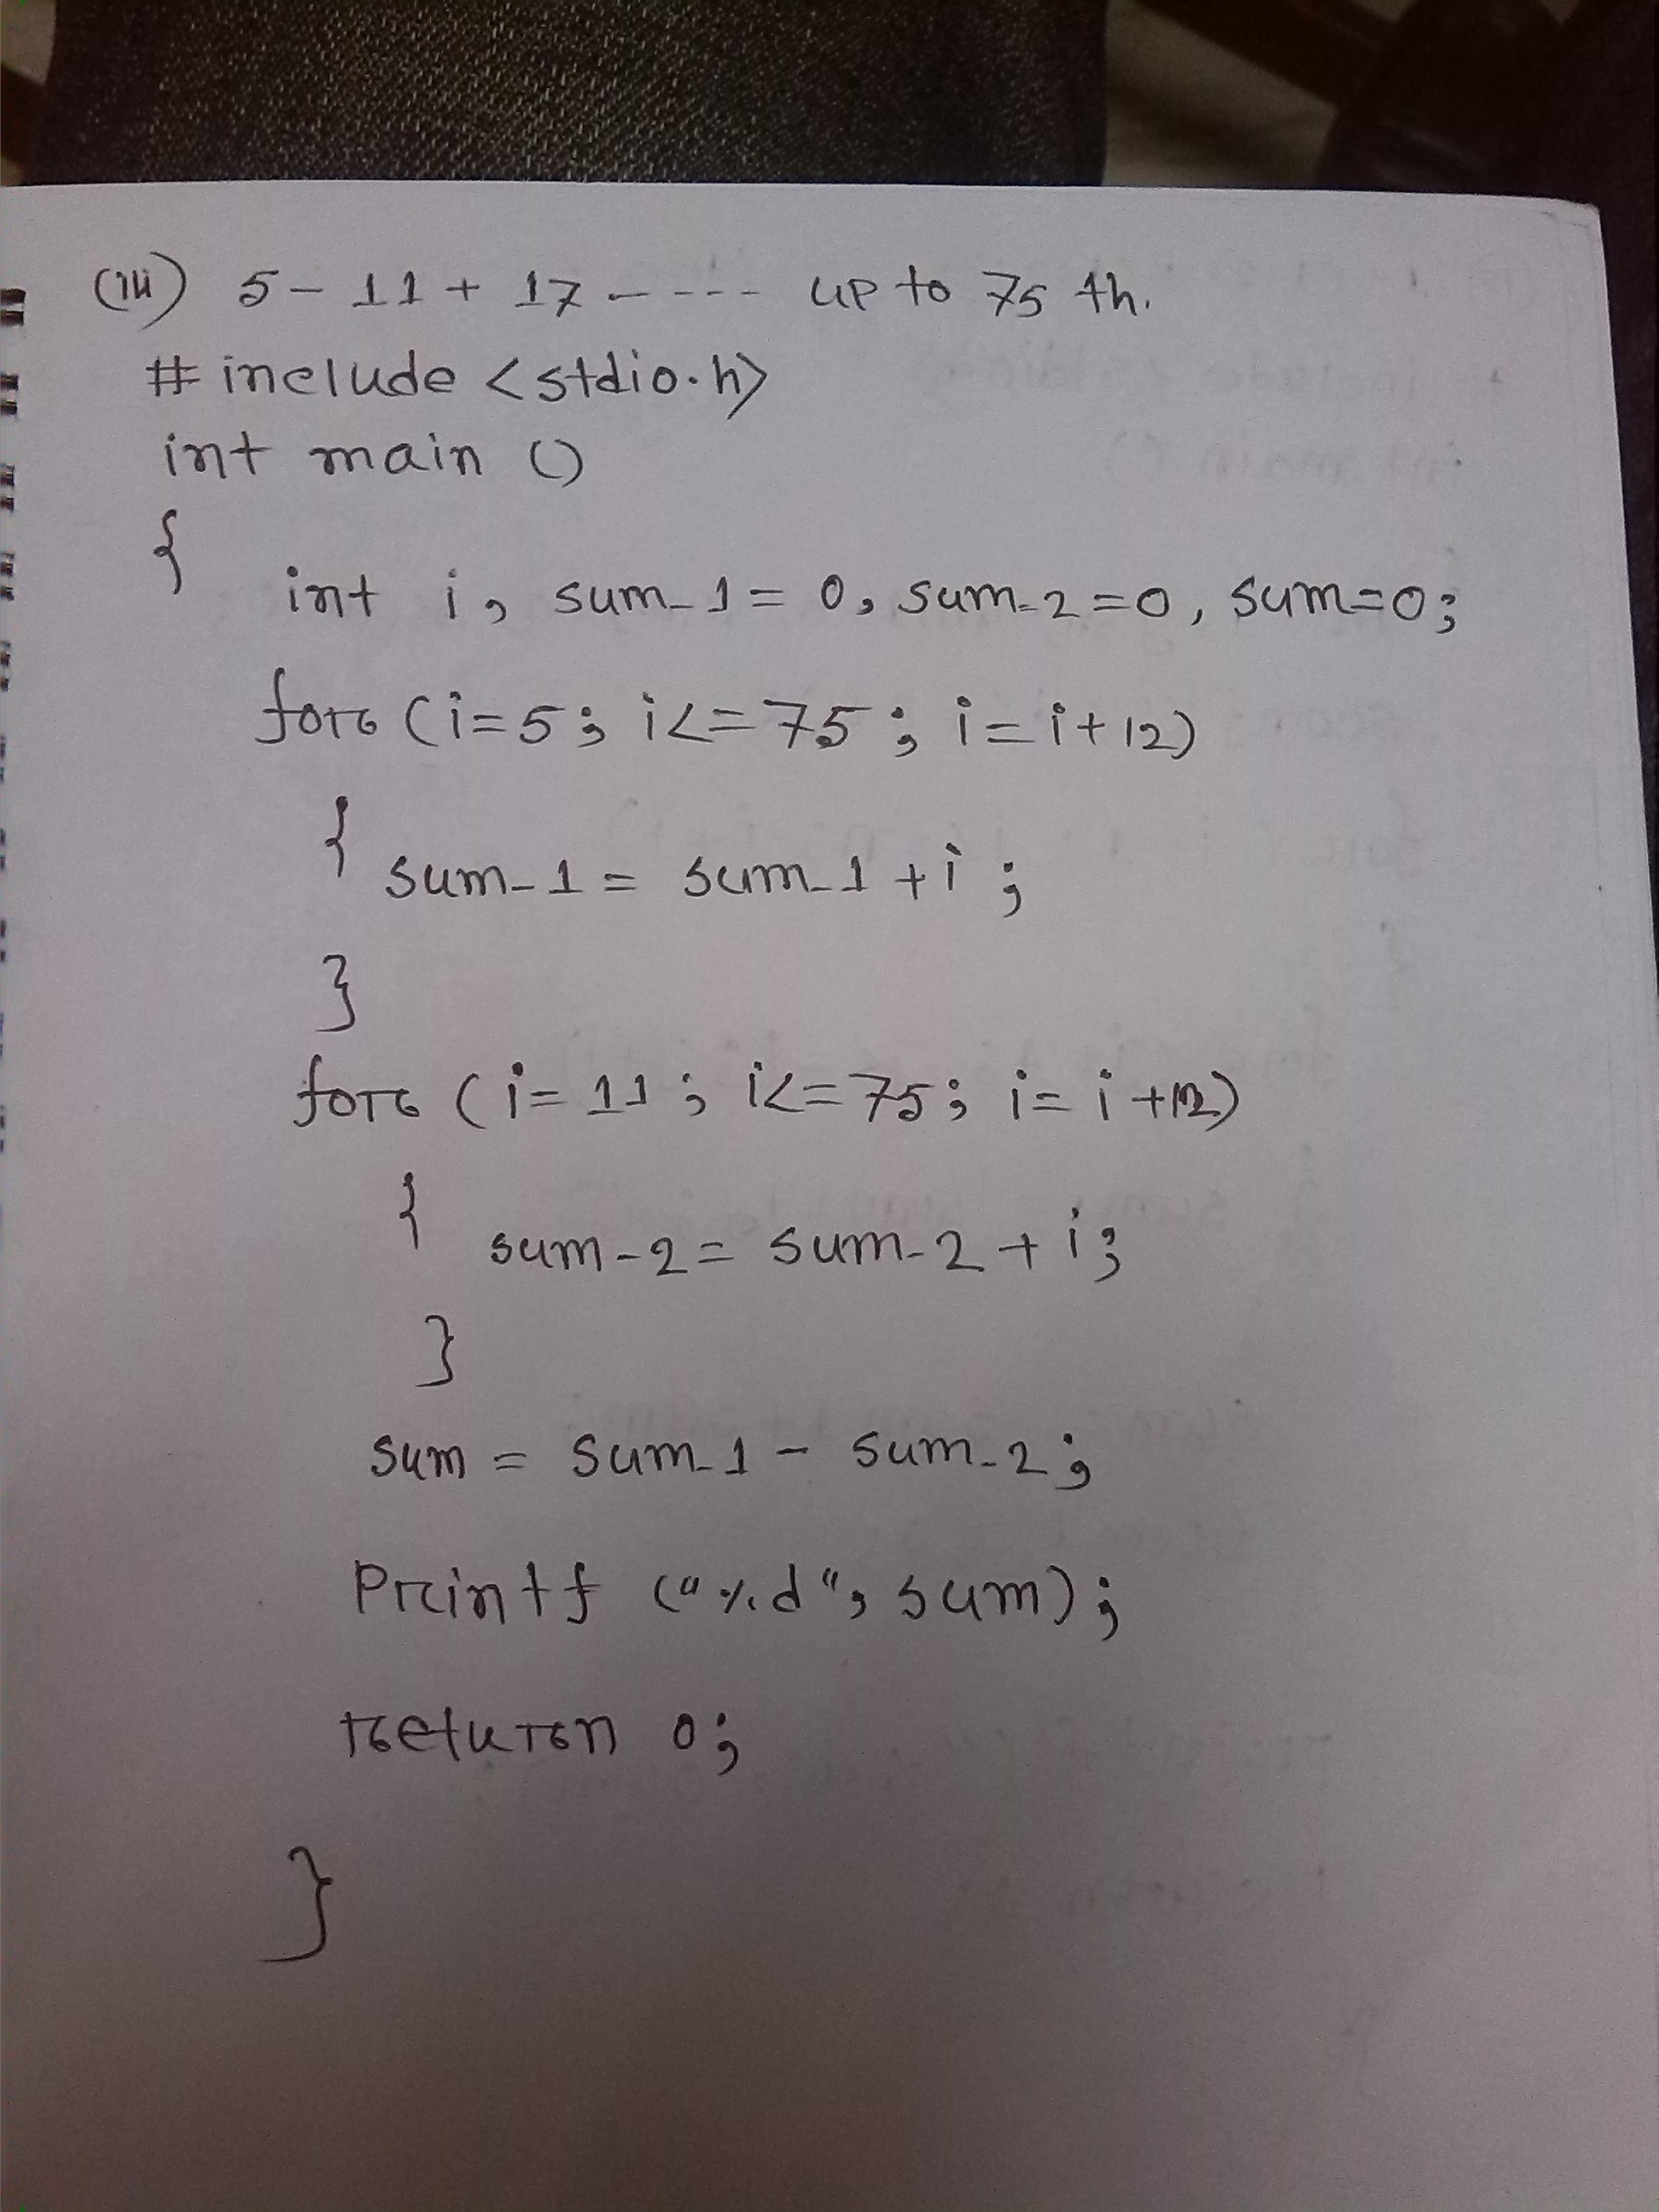 (iii) 5 - 11 + 17 - - - - - up to 75 th.
#include <stdio.h>
int main ()
{
int i, sum_1 = 0, sum_2 = 0, sum = 0;
for (i = 5; i <= 75; i = i + 12)
{ sum_1 = sum_1 + i;
}
for (i = 11; i <= 75; i = i + 12)
{ sum_2 = sum_2 + i;
}
sum = sum_1 - sum_2;
Printf ("%d", sum);
return 0;
}